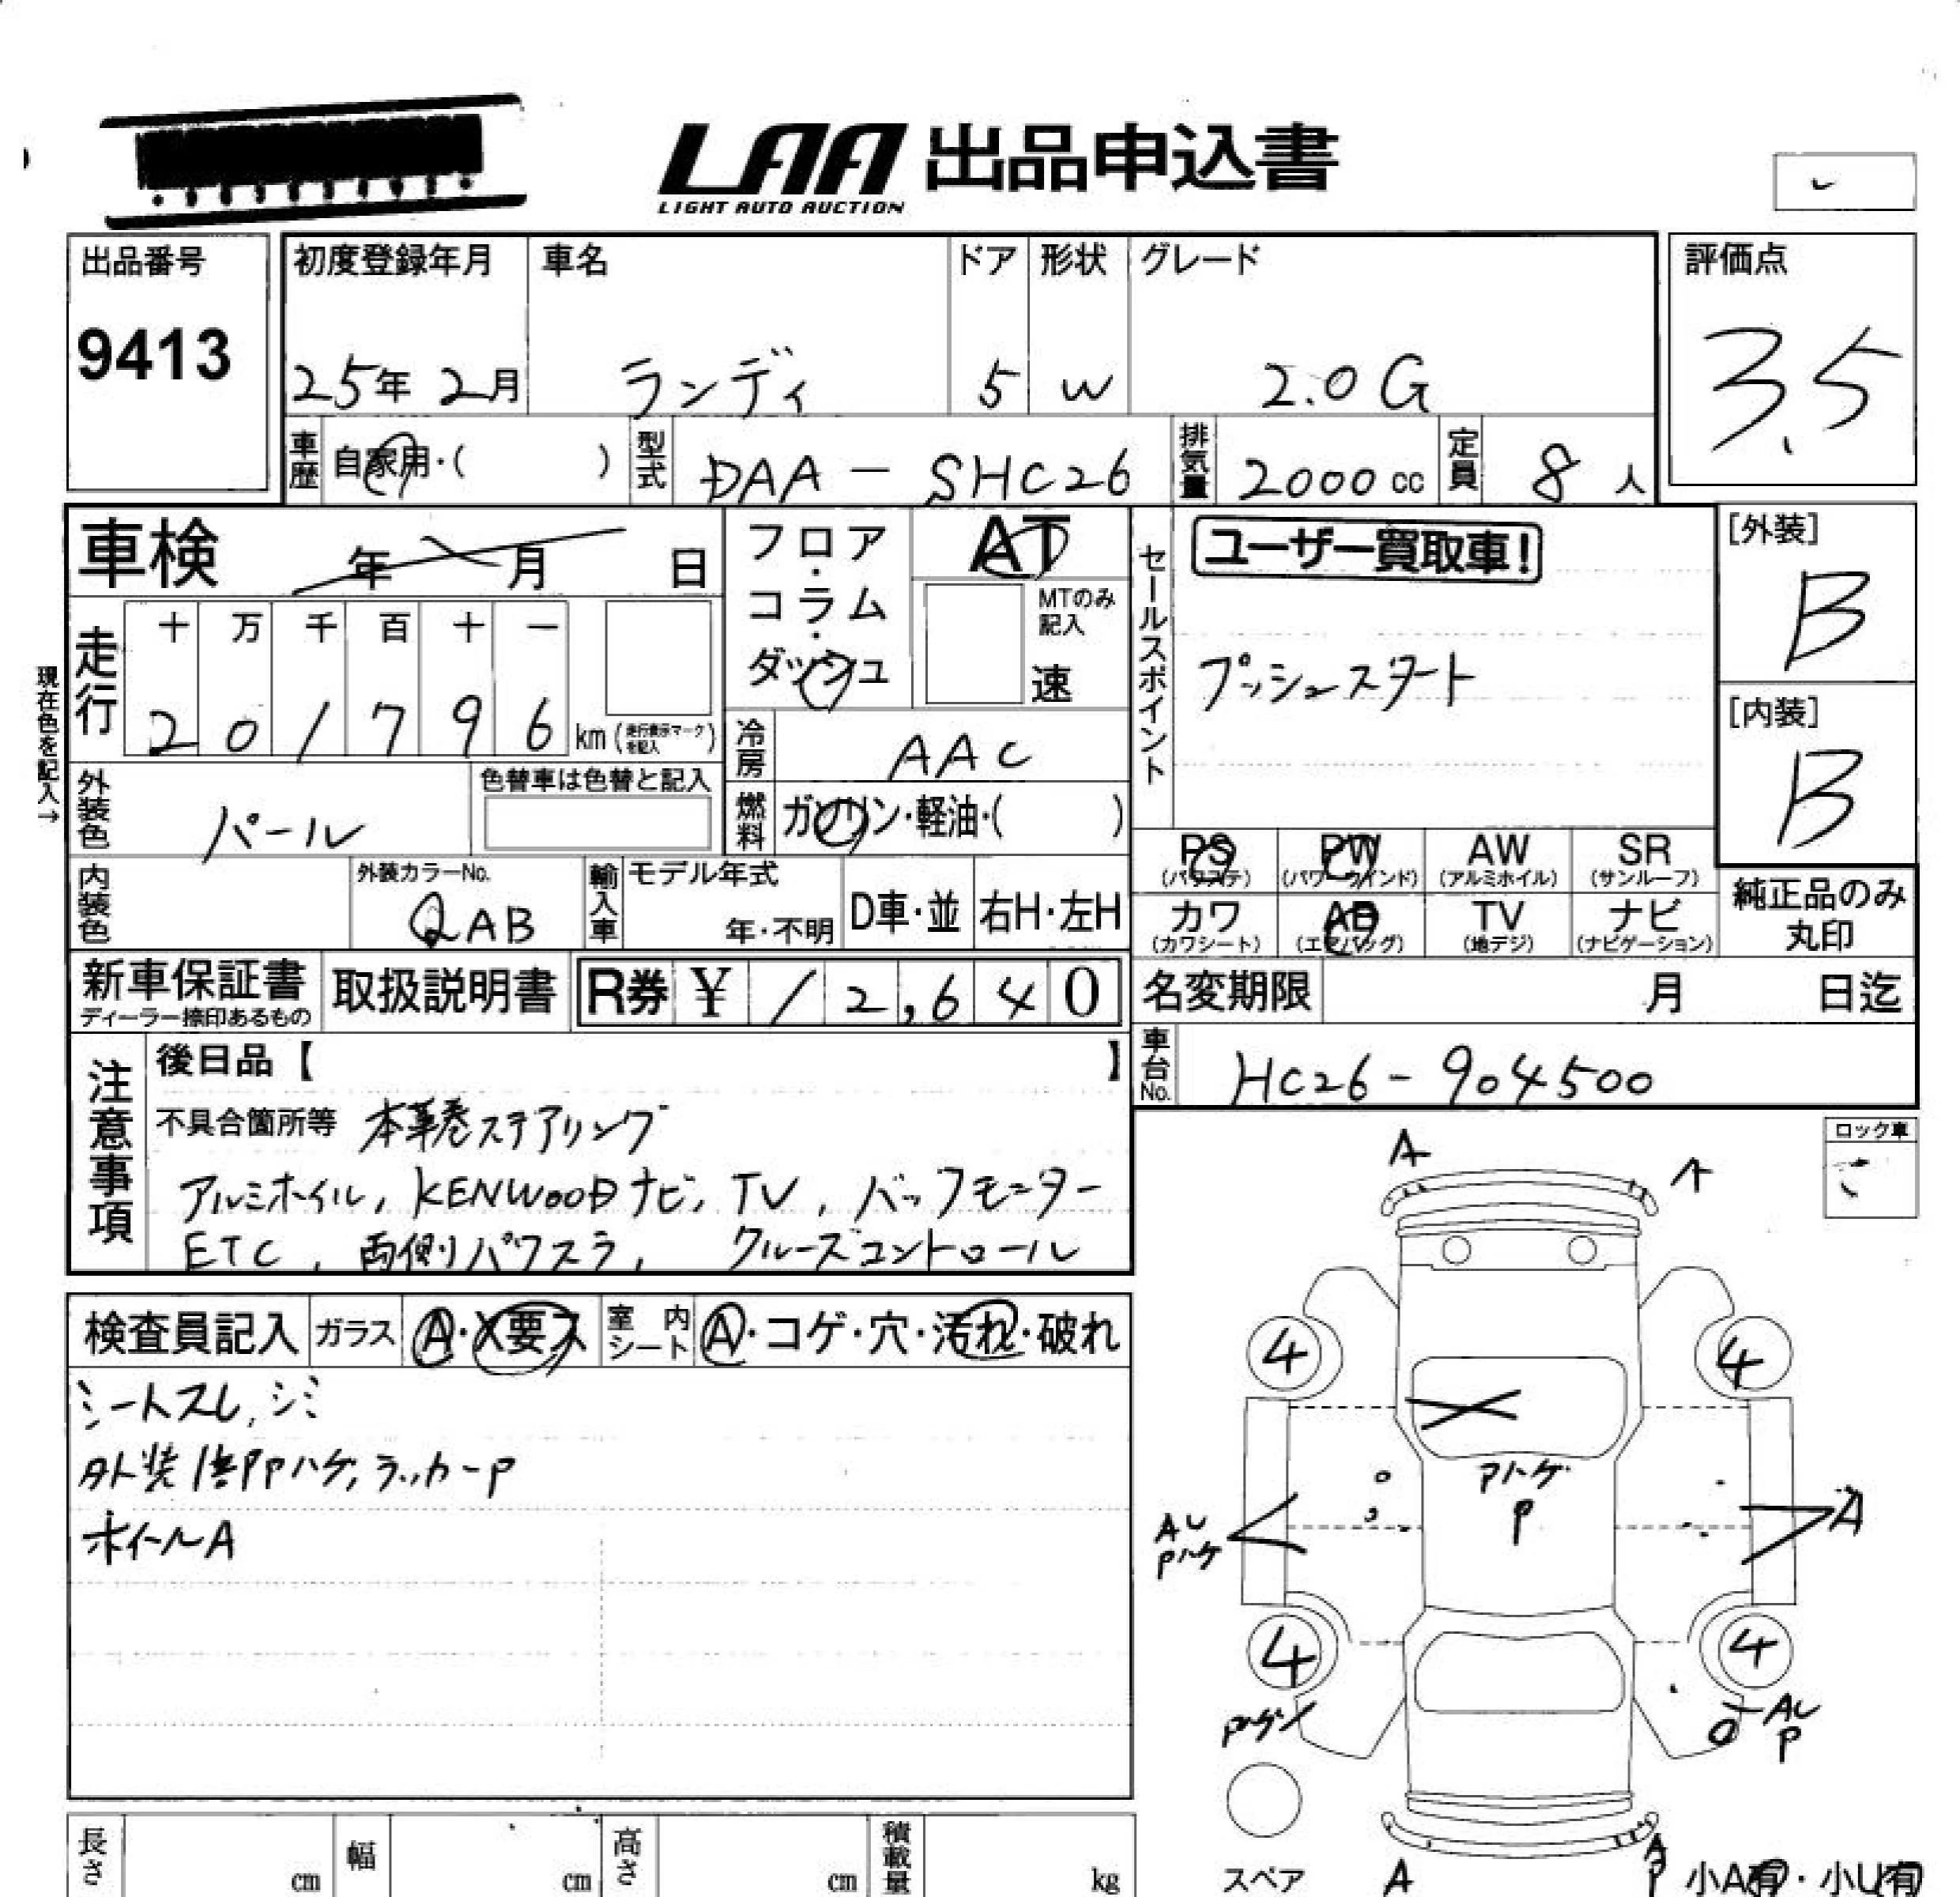 LAA 出品申込書
LIGHT AUTO AUCTION
出品番号
9413
初度登録年月 車名 ドア 形状 グレード
25年 2月 ランディ 5 W 2.0G
評価点
3.5
車歴 自家用・( ) 型式 DAA - SHC26 排気量 2000 cc 定員 8 人
車検 年 月 日
フロア・コラム・ダッシュ
AT
MTのみ記入
速
セールスポイント
ユーザー買取車!
プッシュスタート
[外装]
B
[内装]
B
現在色を記入→
走行 十 万 千 百 十 一
2 0 1 7 9 6 km (走行表示マークを記入)
冷房 AAC
燃料 ガソリン・軽油・( )
外装色 パール
色替車は色替と記入
PS (パワステ) PW (パワーウインド) AW (アルミホイル) SR (サンルーフ)
カワ (カワシート) AB (エアバッグ) TV (地デジ) ナビ (ナビゲーション)
純正品のみ丸印
内装色 外装カラーNo. QAB
輸入車 モデル年式 年・不明 D車・並 右H・左H
新車保証書
ディーラー捺印あるもの
取扱説明書 R券 ¥ 12,640
名変期限 月 日迄
車台No. HC26-904500
注意事項
後日品【 】
不具合箇所等 本革巻ステアリング
アルミホイル, KENWOODナビ, TV, バックモニター
ETC, 両側パワスラ, クルーズコントロール
ロック車
検査員記入 ガラス A・X要ス 室内シート A・コゲ・穴・汚れ・破れ
シートスレ, シミ
外装 PPハゲ, ラッカーP
ホイールA
A A
4 4
Pハゲ
P
AU
Pハゲ
A
4 4
Pハゲ
AU
P
スペア
A
A
P
小A有・小U有
長さ cm 幅 cm 高さ cm 積載量 kg